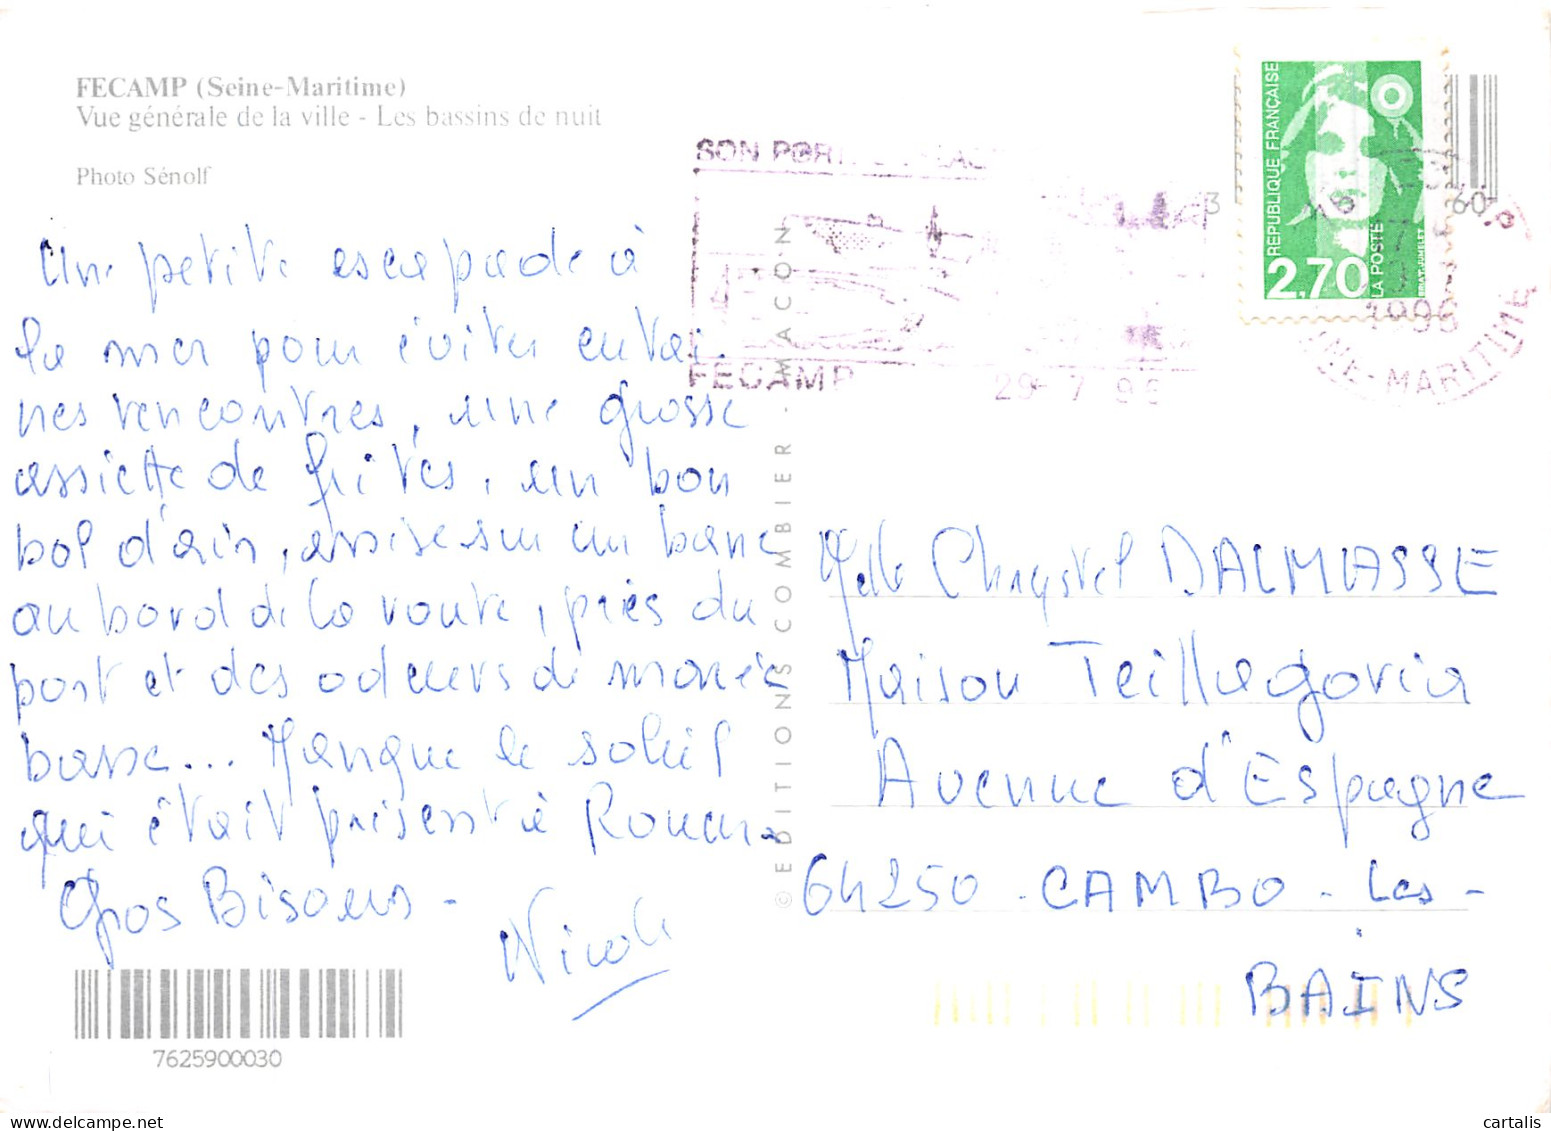 FECAMP (Seine-Maritime)
Vue générale de la ville - Les bassins de nuit
Photo Sénolf
Une petite escapade à
la mer pour éviter certai-
nes rencontres, une grosse
assiette de frites, un bon
bol d'air, assise sur un banc
au bord de la route, près du
port et des odeurs de marée
basse... Manque le soleil
qui était présent à Rouen.
Gros Bisous -
Nicole
7625900030
© EDITIONS COMBIER - MACON
SON PORT
FECAMP
29-7 96
REPUBLIQUE FRANÇAISE
2,70
LA POSTE
BRIAT.JUMELET
3
60
76
1996
SEINE-MARITIME
Melle Chrystel DALMASSE
Maison Teillagorria
Avenue d'Espagne
64250 - CAMBO - Les -
BAINS
cartalis